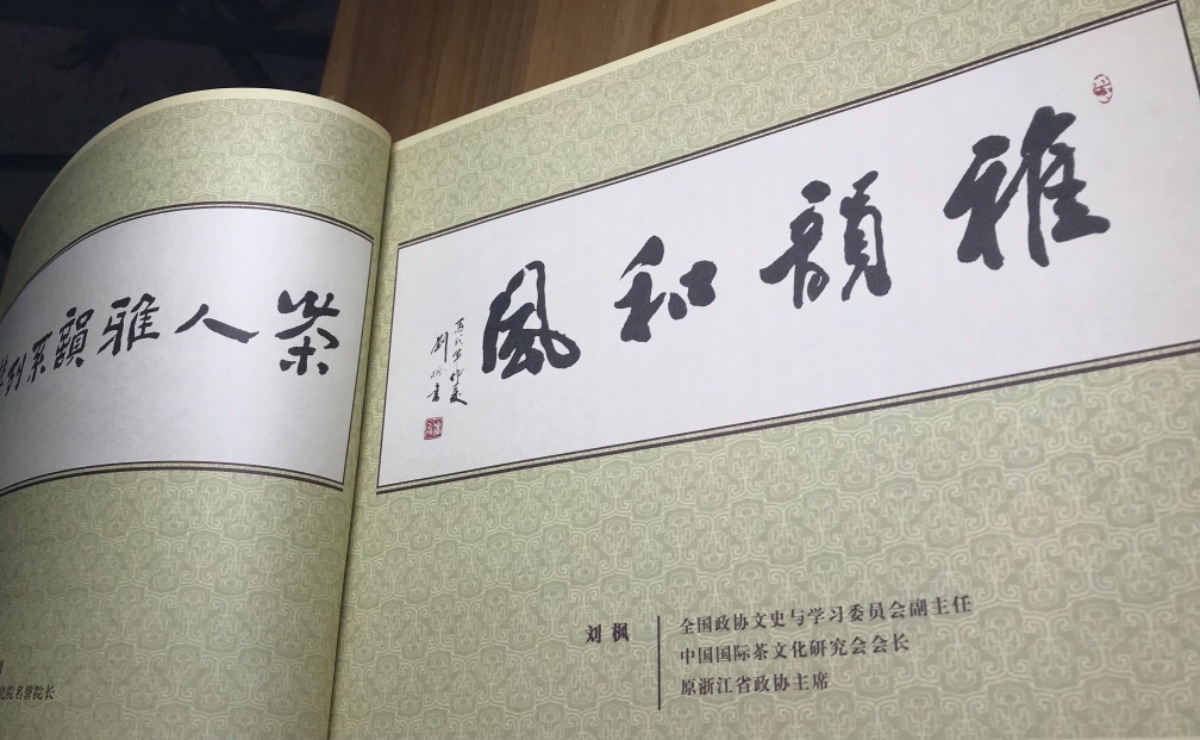 茶人雅韻系列
究院名誉院长
雅韻和風
劉枫書
刘枫
全国政协文史与学习委员会副主任
中国国际茶文化研究会会长
原浙江省政协主席